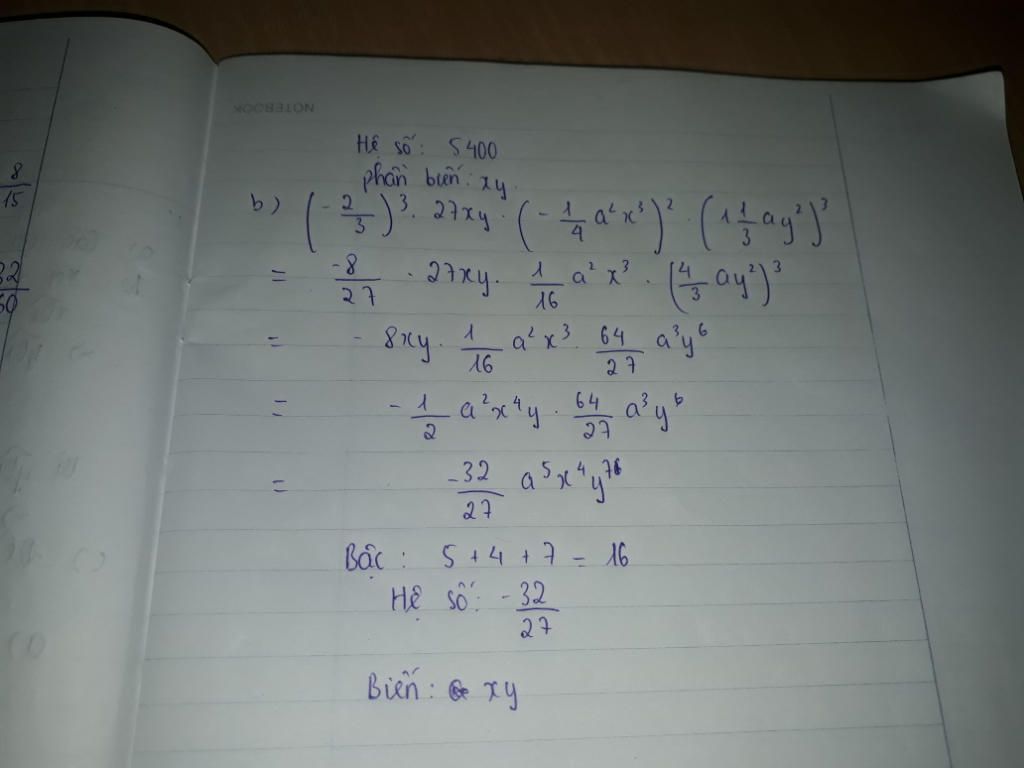 NOTEBOOK
8/15
32/60
Hệ số: 5400
phần biến: xy
b) (-2/3)³. 27xy . (-1/4 a²x³)² . (1 1/3 ay²)³
= -8/27 . 27xy. 1/16 a² x³ . (4/3 ay²)³
= - 8xy . 1/16 a²x³ . 64/27 a³y⁶
= -1/2 a²x⁴y . 64/27 a³y⁶
= -32/27 a⁵x⁴y⁷
Bậc : 5 + 4 + 7 = 16
Hệ số: -32/27
Biến: xy